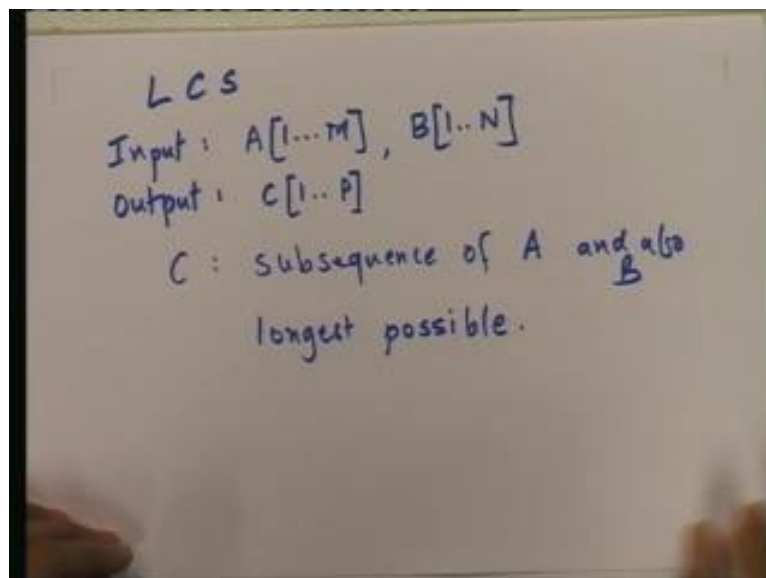 LCS
Input: A[1...M], B[1..N]
Output: C[1..P]
C: subsequence of A and also B
longest possible.